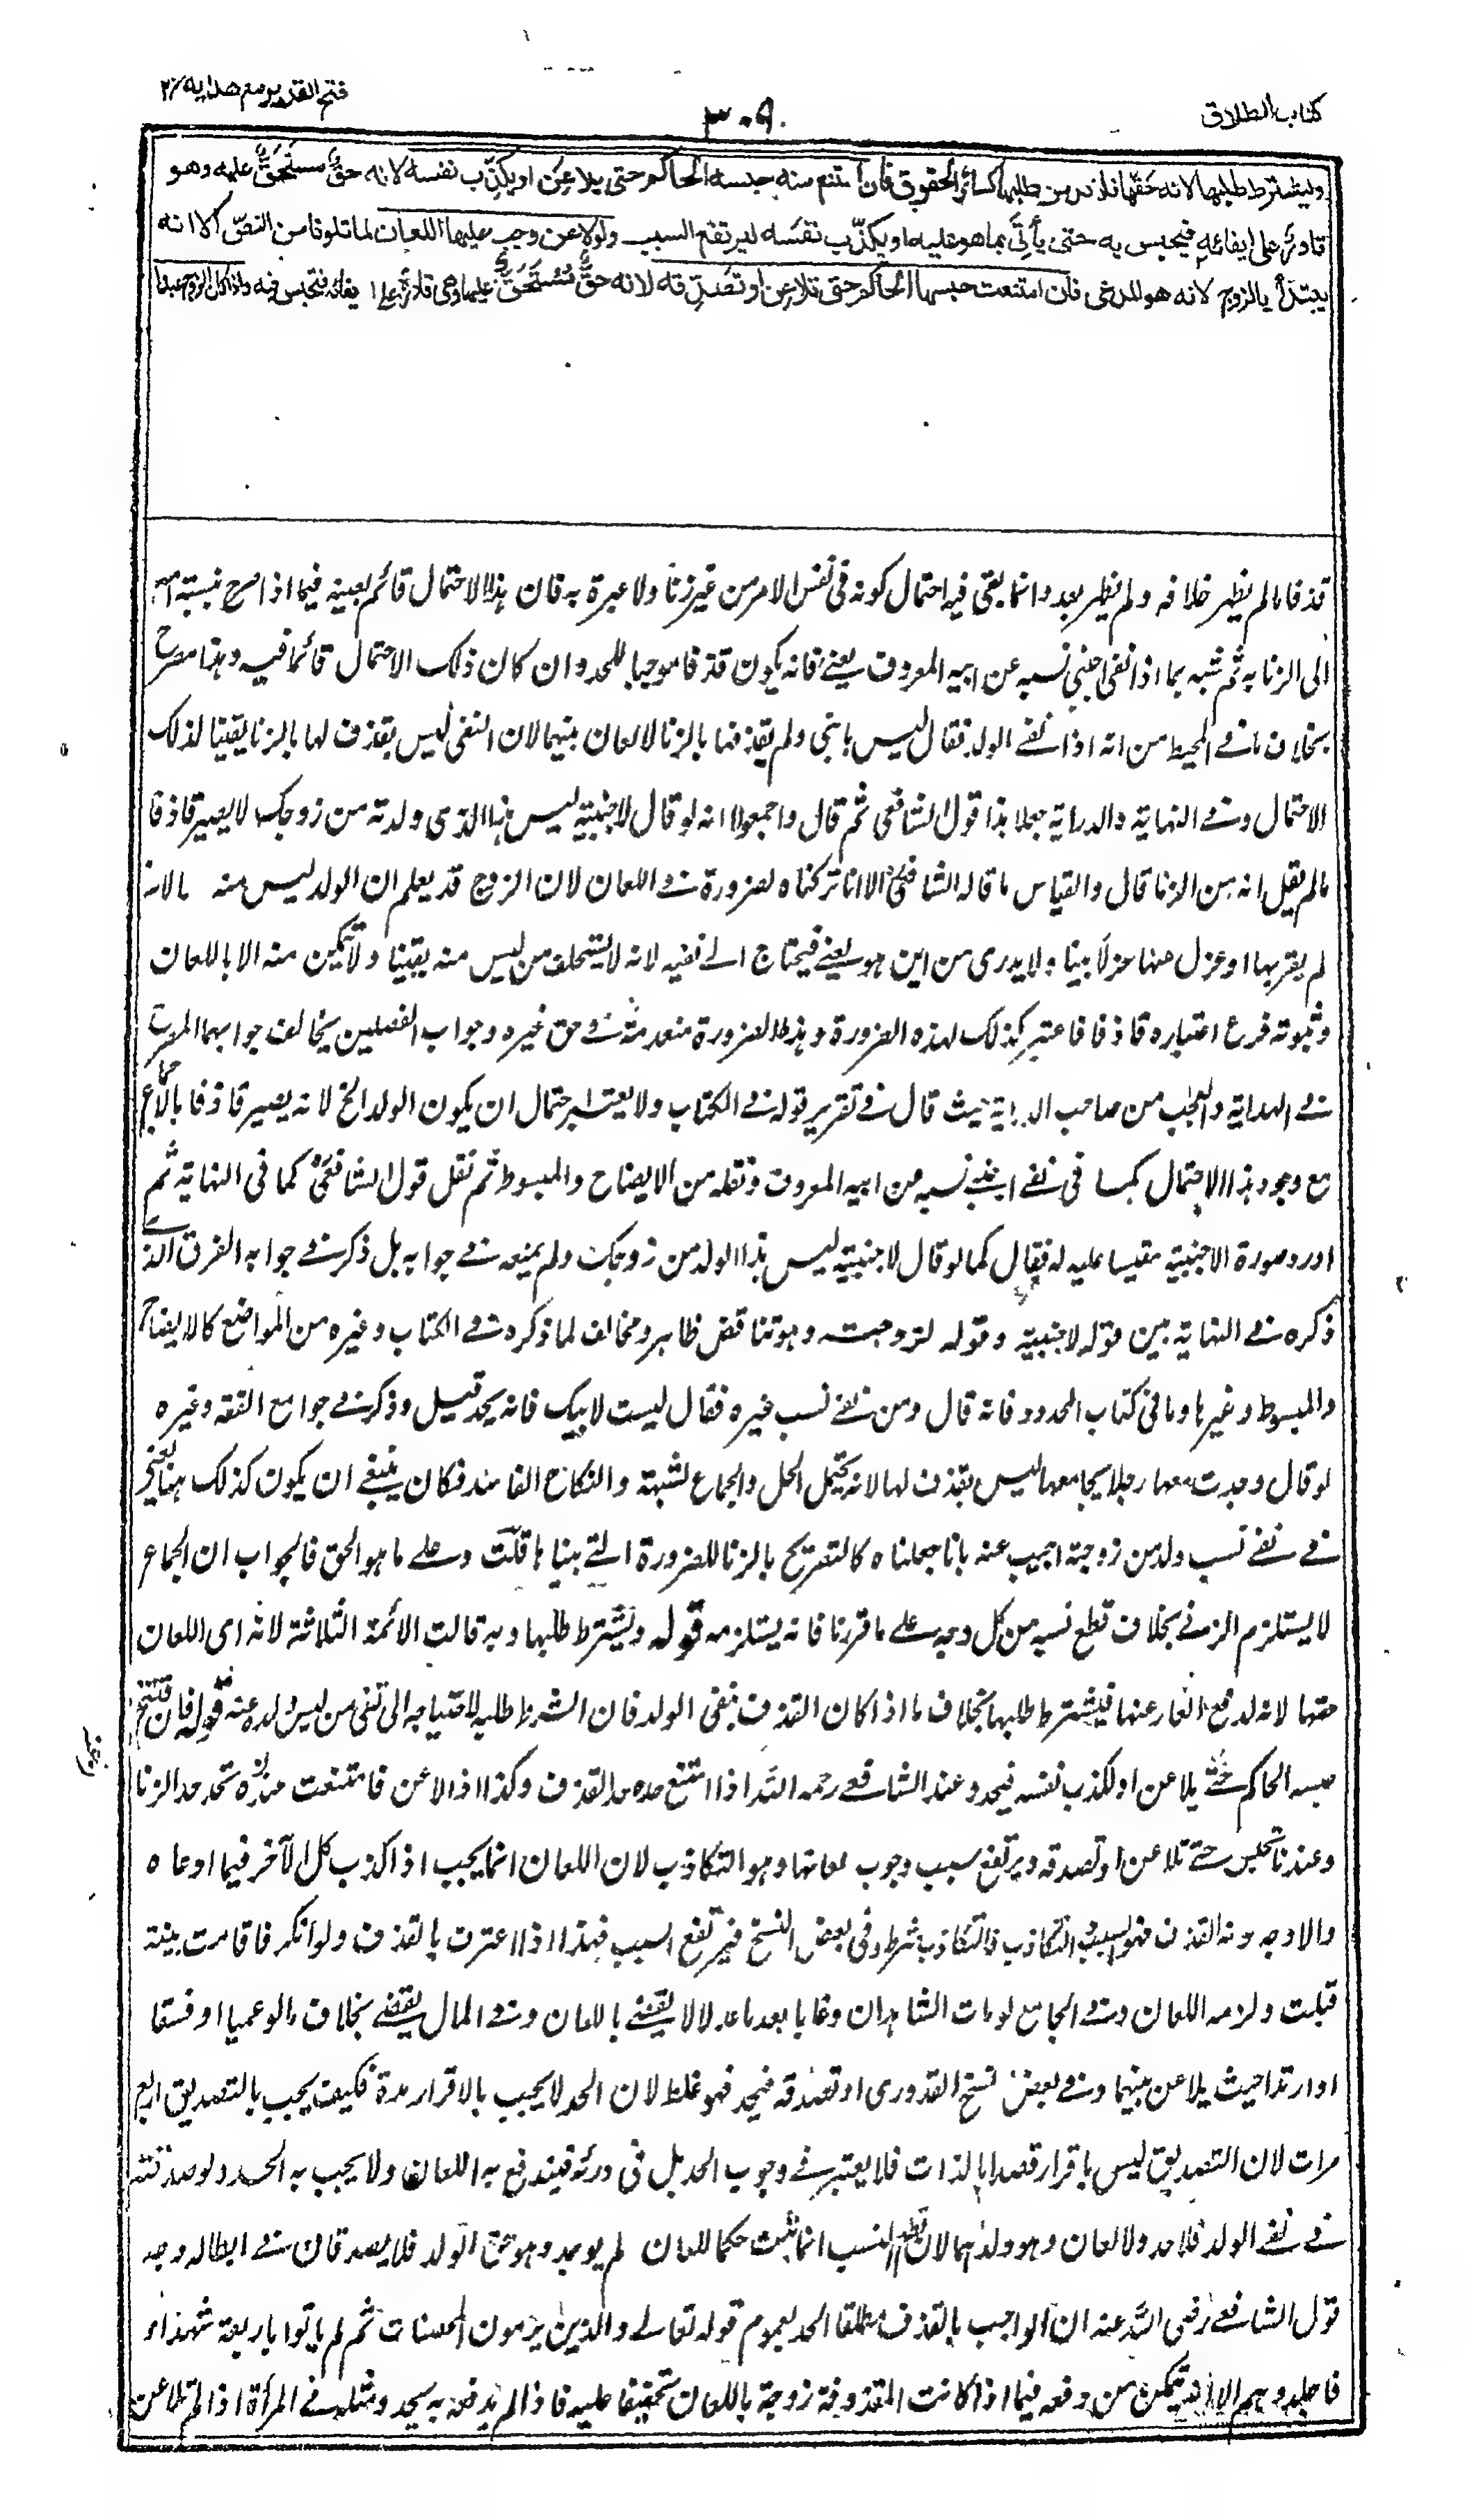 كتاب الطلاق
٣٠٩
فتح القدير مع هدايه /٢
ويشترط طلبها لانه حقها فلا بد من طلبها كسائر الحقوق فان امتنع منه حبسه الحاكم حتى يلاعن او يكذب نفسه لانه حق مستحق عليه وهو
قادر على ايفائه فيحبس به حتى يأتي بما هو عليه او يكذب نفسه ليرتفع السبب ولو لاعن وجب عليها اللعان لما تلونا من النص الا انه
يبتدأ بالزوج لانه هو المدعي فان امتنعت حبسها الحاكم حتى تلاعن او تصدقه لانه حق مستحق عليها وهي قادرة على ايفائه فتحبس فيه واذا كان الزوج عبدا
قذفا ما لم يظهر خلافه ولم يظهر بعد وانما بقى فيه احتمال كونه في نفس الامر من غير زنا ولا عبرة به فان هذا الاحتمال قائم بعينه فيما اذا صرح بنسبة امه
الى الزنا به ثم شبه بما اذا نفى اجنبي نسبه عن ابيه المعروف يعني فانه يكون قذفا موجبا للحد وان كان ذلك الاحتمال قائما فيه وهذا مصرح
بخلاف ما في المحيط من انه اذا نفى الولد فقال ليس بابني ولم يقذفها بالزنا لا لعان بينهما لان النفى ليس بقذف لها بالزنا يقينا لذلك
الاحتمال وفي النهاية والدراية جعلا هذا قول الشافعي ثم قال واجمعوا انه لو قال لاجنبية ليس هذا الذي ولدته من زوجك لا يصير قاذفا
ما لم يقل انه من الزنا قال والقياس ما قاله الشافعي الا انا تركناه لضرورة في اللعان لان الزوج قد يعلم ان الولد ليس منه بانه
لم يقربها او عزل عنها عزلا بينا ولا يدرى من اين هو يعني فيحتاج الى نفيه لانه لا يستلحق من ليس منه يقينا ولا يتمكن منه الا باللعان
وثبوته فرع اعتباره قاذفا فاعتبر كذلك لهذه الضرورة وهذه الضرورة منعدمة في حق غيره وجواب الفصلين يخالف جوابهما المصرح
في الهداية والعجب من صاحب الدراية حيث قال في تقرير قوله في الكتاب ولا يعتبر احتمال ان يكون الولد الخ لانه يصير قاذفا بالاجماع
مع وجود هذا الاحتمال كما في نفى اجنبي نسبه من ابيه المعروف ونقله من الايضاح والمبسوط ثم نقل قول الشافعي كما في النهاية ثم
اورد صورة الاجنبية مقيسا عليه له فقال كما لو قال لاجنبية ليس هذا الولد من زوجك ولم يمنعه في جوابه بل ذكر في جوابه الفرق الذي
ذكره في النهاية بين قوله لاجنبية وقوله لزوجته وهو تناقض ظاهر ومخالف لما ذكره في الكتاب وغيره من المواضع كالايضاح
والمبسوط وغيرها وما في كتاب الحدود فانه قال ومن نفى نسب غيره فقال ليست لابيك فانه يحد قيل وذكر في جوامع الفقه وغيره
لو قال وجدت معها رجلا يجامعها ليس بقذف لها لانه يحتمل الحل والجماع لشبهة والنكاح الفاسد فكان ينبغي ان يكون كذلك هنا يعني
في نفى نسب ولد من زوجته اجيب عنه بانا جعلناه كالتصريح بالزنا للضرورة التي بينا ها قلت وعلى ما هو الحق فالجواب ان الجماع
لا يستلزم الزنى بخلاف قطع نسبه من كل وجه على ما قررنا فانه يستلزمه قوله ويشترط طلبها وبه قالت الائمة الثلاثة لانه اى اللعان
حقها لانه لدفع العار عنها فيشترط طلبها بخلاف ما اذا كان القذف بنفى الولد فان الشرط طلبه لاحتياجه الى نفى من ليس ولده عنه قوله فان امتنع
حبسه الحاكم حتى يلاعن او يكذب نفسه فيحد وعند الشافعي رحمه الله اذا امتنع حده حد القذف وكذا اذا لاعن فامتنعت عنده تحد حد الزنا
وعندنا تحبس حتى تلاعن او تصدقه ويرتفع سبب وجوب لعانها وهو التكاذب لان اللعان انما يجب اذا اكذب كل الآخر فيما ادعاه
والاوجه كونه القذف فهو السبب والتكاذب شرط وفي بعض النسخ فيرتفع السبب فهذا اذا اعترف بالقذف ولو انكر فاقامت بينة
قبلت ولزمه اللعان وفي الجامع لو مات الشاهدان وغابا بعد ما عدلا لا يقضى باللعان وفي المال يقضى بخلاف ما لو عميا او فسقا
او ارتدا حيث يلاعن بينهما وفي بعض نسخ القدوري او تصدقه فتحد فهو غلط لان الحد لا يجب بالاقرار مرة فكيف يجب بالتصديق اربع
مرات لان التصديق ليس باقرار قصدا بالذات فلا يعتبر في وجوب الحد بل في درئه فيندفع به اللعان ولا يجب به الحد ولو صدقته
في نفى الولد فلا حد ولا لعان وهو ولدهما لان النسب انما ينقطع حكما للعان لم يوجد وهو حق الولد فلا يصدقان في ابطاله وجه
قول الشافعي رضى الله عنه ان الواجب بالقذف مطلقا الحد لعموم قوله تعالى والذين يرمون المحصنات ثم لم ياتوا باربعة شهداء
فاجلدوهم الا انه يتمكن من دفعه فيما اذا كانت المقذوفة زوجة باللعان تخفيفا عليه فاذا لم يدفعه به يحد ومثله في المرأة اذا لم تلاعن